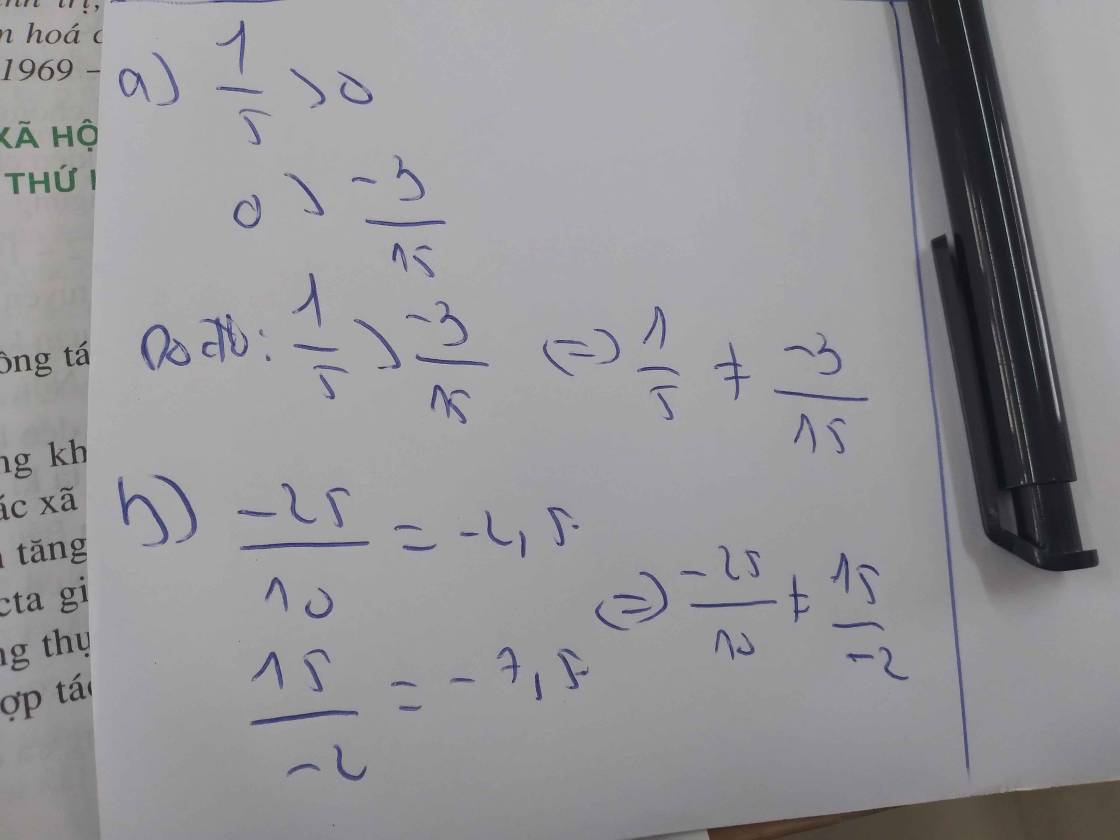 ôn hoá c
1969 –
XÃ HỘ
THỨ
ông tá
ng kh
ác xã
tăng
cta gi
ng thụ
ợp tác
a) 1/5 > 0
0 > -3/15
Do đó: 1/5 > -3/15 (=) 1/5 ≠ -3/15
b) -25/10 = -2,5
15/-2 = -7,5
(=) -25/10 ≠ 15/-2